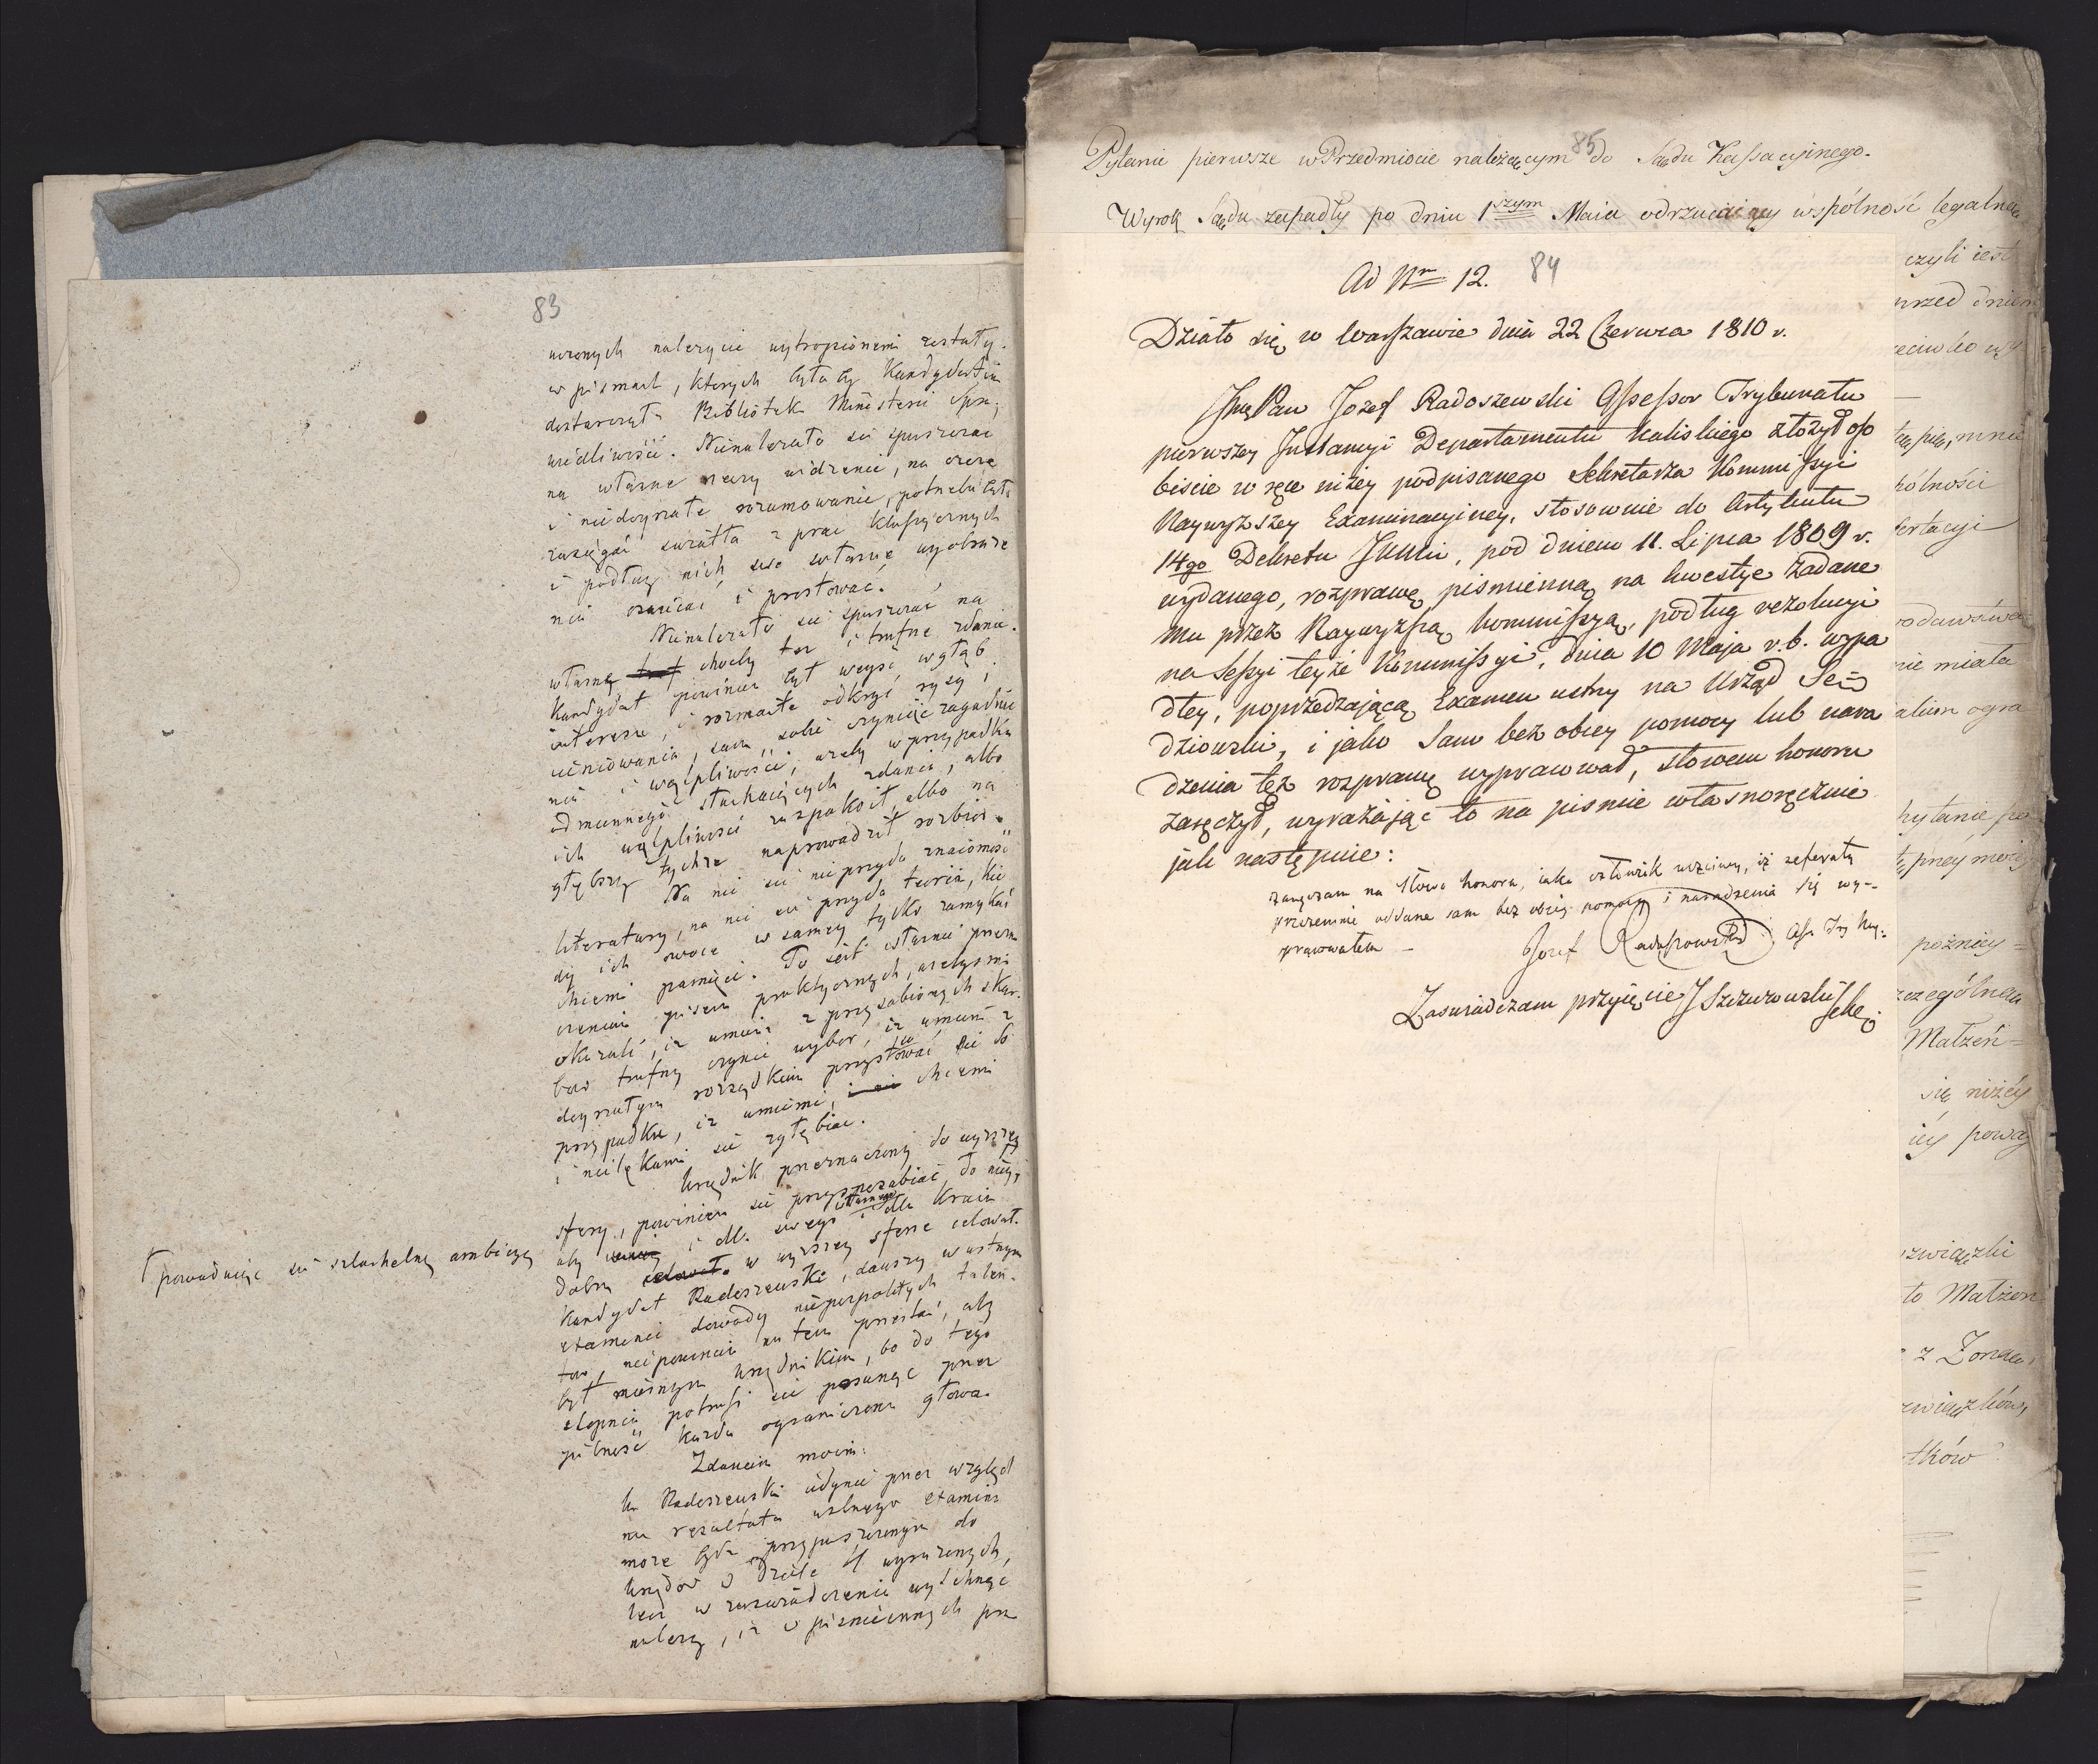 83
uczonych należycie wytropionemi zostały.
w pismach, których były by Kandydatowi
dostarczyła Biblioteka Ministerii Spra-
wiedliwości. Nienależało się spuszczać
na własne rzeczy widzenie, na czcze
i niedoyrzałe rozumowanie, potrzeba było
zasięgać światła z prac klassycznych
i podług nich swe własne wyobraże
nia oświecać i prostować.
Nienależało się spuszczać na
własne choćby też i trafne zdanie.
Kandydat powinien był weyść wgłąb
interesu, i rozmaite odkryć rysy i
cieniowania, sam sobie czyniąc zagadnie
nia i wątpliwości, ażeby w przypadku
odmiennego słuchających zdania, albo
ich wątpliwość zaspokoił, albo na
głębszy tychże naprowadził rozbiór.
Na nic się nieprzyda znaiomość
literatury, na nic się przyda teoria, kie
dy ich owoce w samey tylko zamykać
chcemi pamięci. To jest własnie przezna
czeniem pisem praktycznych, ażebyśmi
okazali, iż umiemi z przysobionych skar-
bów trafny czynić wybór, iż umiemi z
doyrzałym rozsądkiem przystosować się do
przypadku, iż umiemi, chcemi
i nielękami się zgłębiac.
Urzędnik przeznaczony do wyższey
sfery, powinien się przysposabiać do niey,
aby i dla swego własnego i dla kraiu
dobra w wyższey sferze celował.
⌈ powoduiąc się szlachetną ambicyą
Kandydat Radoszewski, dawszy w ustnym
examinie dowody niepospolitych talen-
tów, niepowinien na tem przestać, aby
był miernym urzędnikiem, bo do tego
stopnia potrafi się posunąć przez
pilność każda ograniczona głowa.
Zdaniem moim:
Ur Radoszewski iedynie przez wzgląd
na rezultata ustnego examinu
może bydź przypuszczonym do
Urzędów w dziale II wyrażonych,
lecz w zaświadczeniu wytchnąć
należy, iż w piśmiennych pra
85
Pytanie pierwsze w Przedmiocie należącym do Sądu Kassacyinego.
Wyrok Sądu zapadły po dniu 1szym Maia odrzucaiący wspólność legalną
84
Ad Nrm 12.
Działo się w Warszawie dnia 22 Czerwca 1810 r.
JmćPan Jozef Radoszewski Assessor Trybunału
pierwszey Instancyi Departamentu Kaliskiego złożył oso
biscie w ręce niżey podpisanego Sekretarza Kommissyi
Naywyższey Examinacyiney, stosownie do Artykułu
14go Dekretu JKMci, pod dniem 11. Lipca 1809 r.
wydanego, rozprawę piśmienną na kwestye zadane
mu przez Naywyższą kommissyą, podług rezolucyi
na Sessyi teyże Kommissyi, dnia 10 Maja r. b. wypa
dłey, poprzedzającą Examen ustny na Urząd Sę=
dziowski, i jako Sam bez obcey pomocy lub nara
dzenia też rozprawę wypracował, słowem honoru
zaręczył, wyrażając to na pismie własnoręcznie
jak następuie:
zaręczam na Słowo honoru, iako człowiek uczciwy, iż referata
przezemnie oddane sam bez obcey pomocy i naradzenia się wy-
pracowałem -
Jozef Radoszewski Ass: Try Kay:
Zaswiadczam przyięcie J Szczurowski Sekr:
czyli iest
przed dniem
ęspię, mnie
pólności
sertacyi
odawstwa
nie miała
alium ogra
pytanie po
pney moiey
poźniey=
zczególnem
Małżeń=
się niżey
iey powag
związki
to Małżen
z Żoną,
związków,
tków